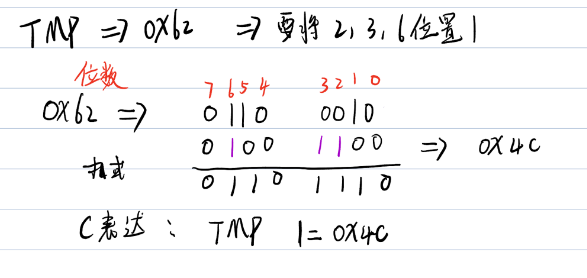 TMP => 0X62 => 要将 2, 3, 6位置1
位数 7 6 5 4 3 2 1 0
0X62 => 0 1 1 0 0 0 1 0
0 1 0 0 1 1 0 0 => 0X4C
0 1 1 0 1 1 1 0
C表达: TMP |= 0X4C